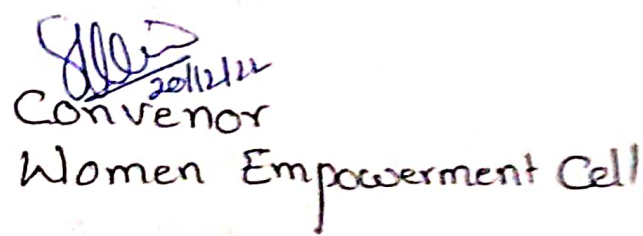 20/12/22
Convenor
Women Empowerment Cell